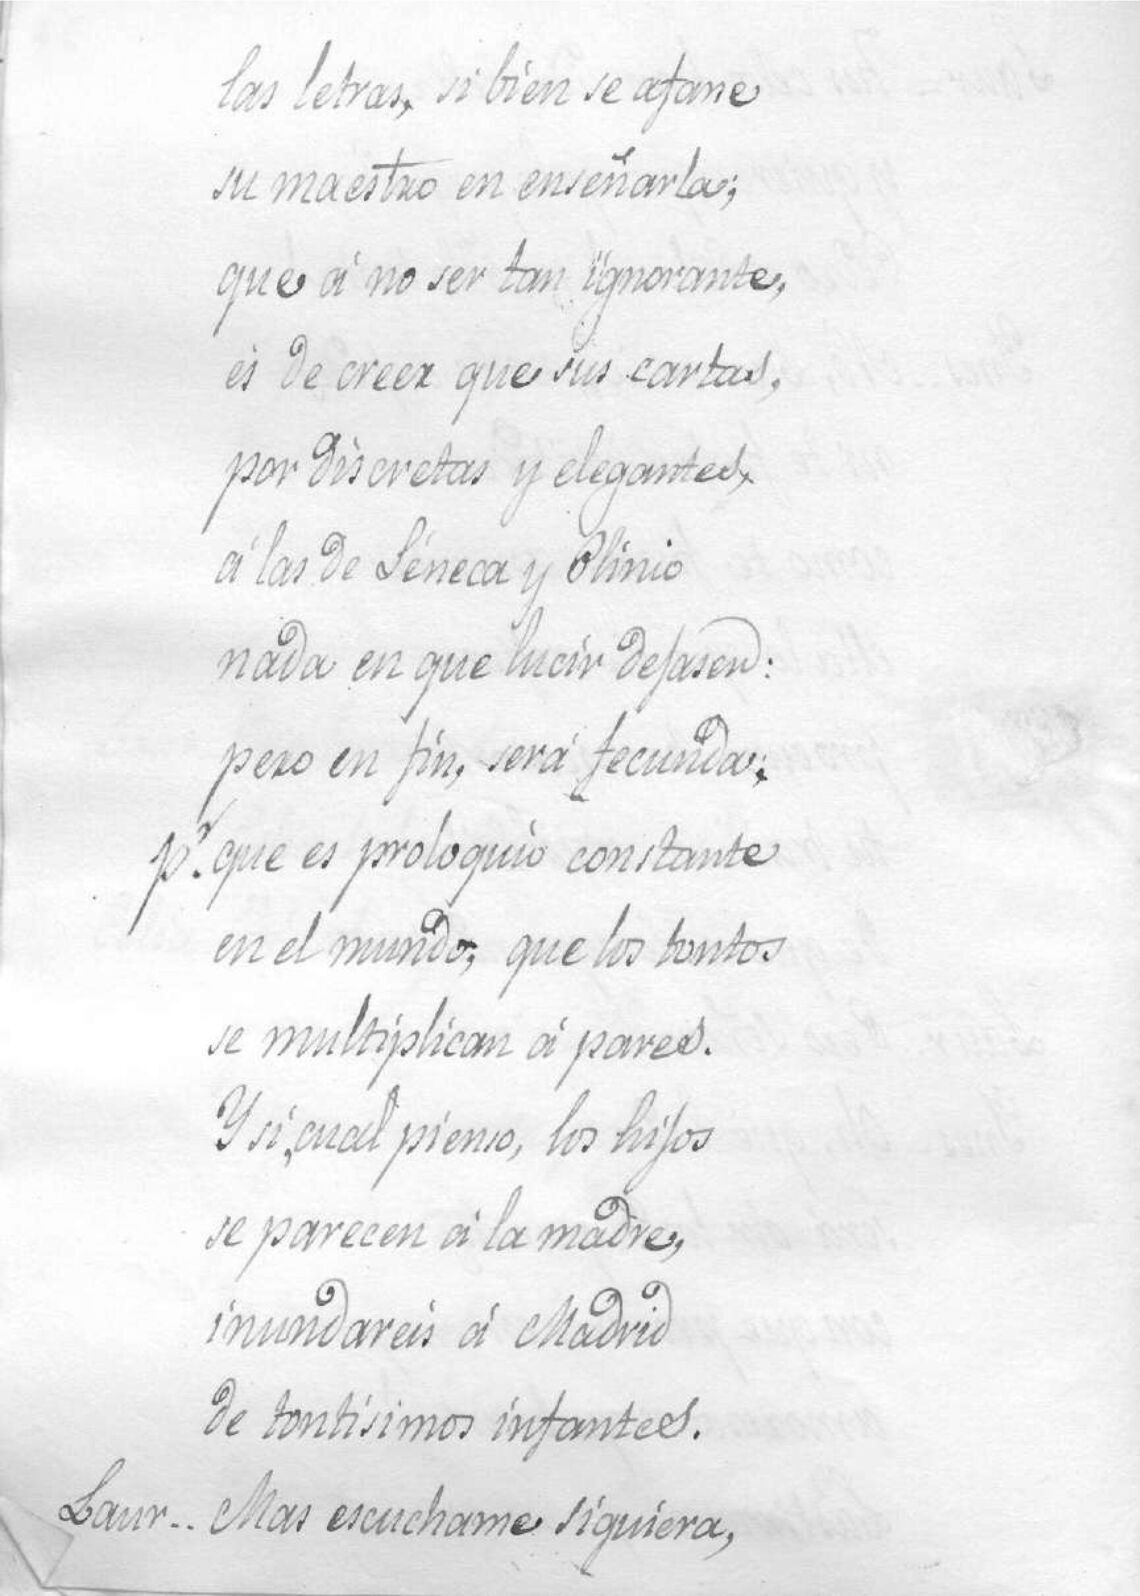 las letras, si bien se afane
su maestro en enseñarla;
que á no ser tan ignorante,
es de creer que sus cartas,
por discretas y elegantes,
á las de Séneca y Plinio
nada en que lucir dejasen:
pero en fin, será fecunda;
p.r que es proloquio constante
en el mundo, que los tontos
se multiplican á pares.
Y si, cual pienso, los hijos
se parecen á la madre,
inundareis á Madrid
de tontisimos infantes.
Laur.. Mas escuchame siquiera,